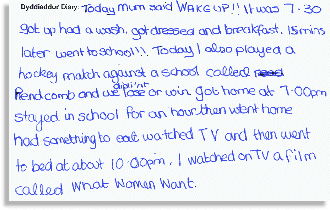 Dyddiaddur Diary: Today mum said WAKE UP!! It was 7.30
got up had a wash, got dressed and breakfast. 15 mins
later went to school!!!. Today I also played a
hockey match against a school called
Pencomb and we didn't lose or win. got home at 7:00pm
stayed in school for an hour then went home
had something to eat watched TV and then went
to bed at about 10:00pm. I watched on TV a film
called What Women Want.